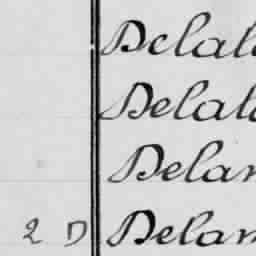 Delal
Delal
Delan
2 D Delam